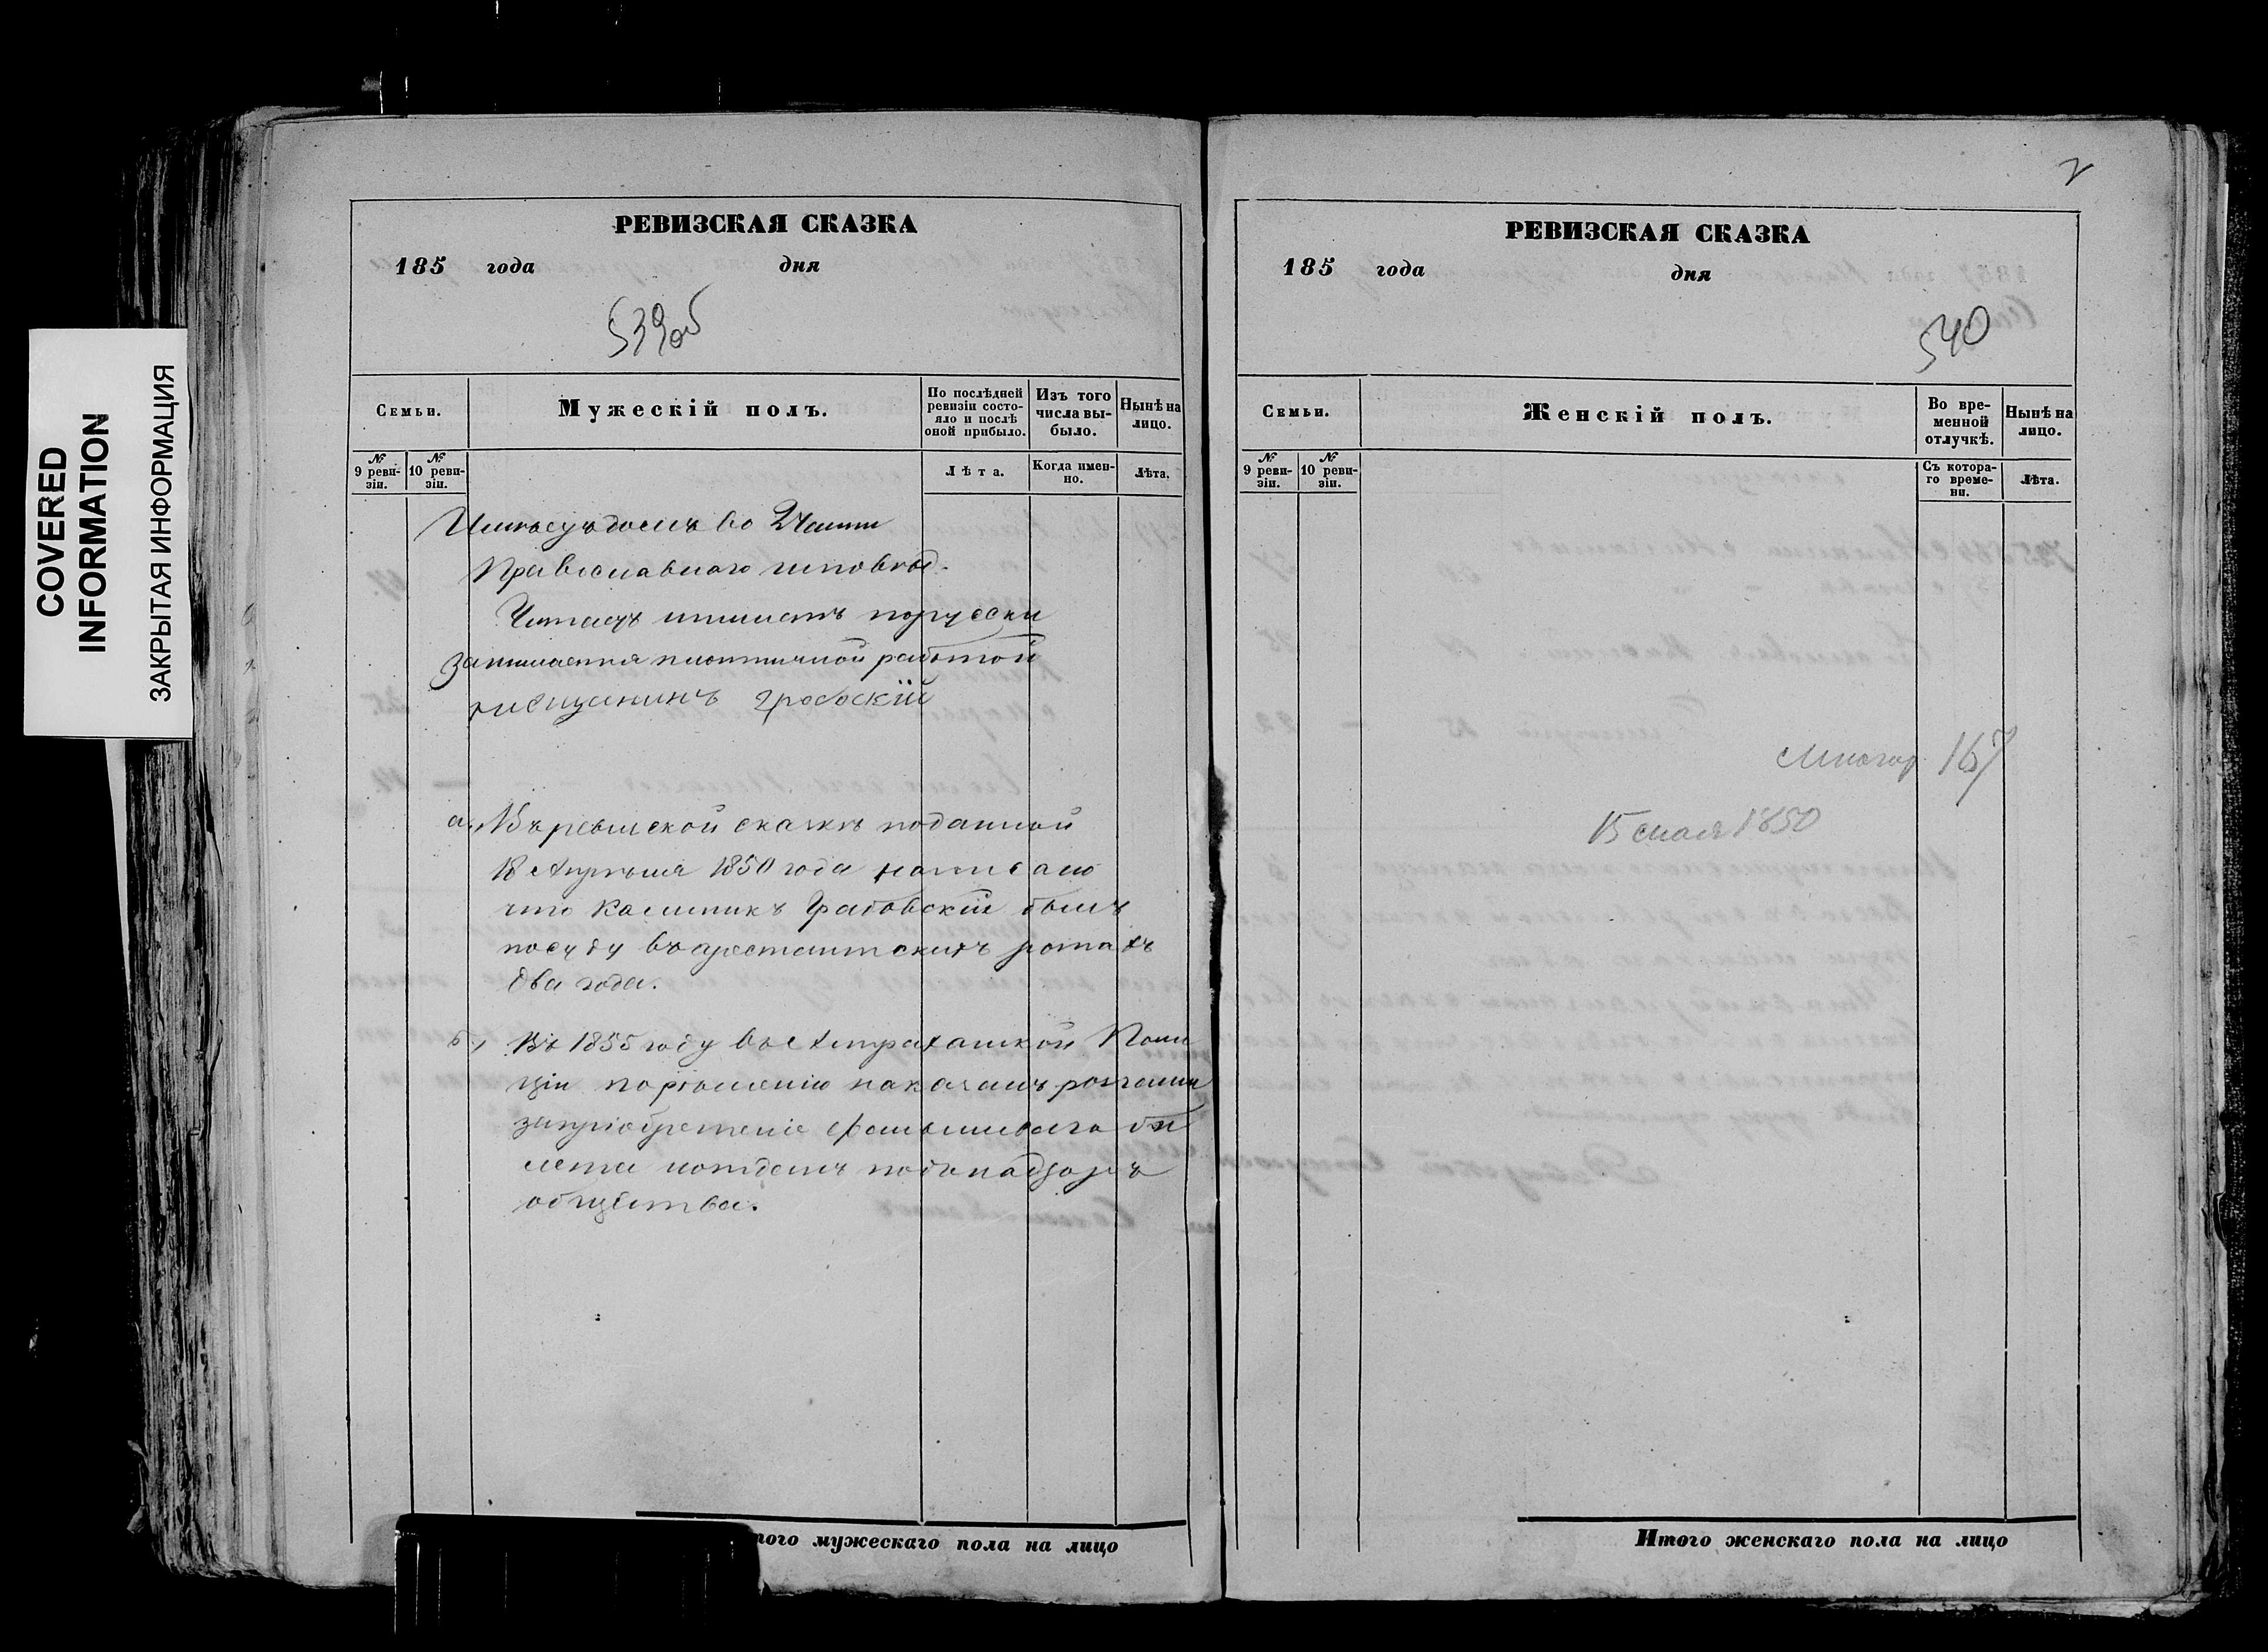 COVERED
INFORMATION
ЗАКРЫТАЯ ИНФОРМАЦИЯ
РЕВИЗСКАЯ СКАЗКА
185 года дня
539об
Семьи.
Мужескій полъ.
По послѣдней ревизіи состояло и послѣ оной прибыло.
Изъ того числа выбыло.
Нынѣ на лицо.
№ 9 ревизіи.
№ 10 ревизіи.
Лѣта.
Когда именно.
Лѣта.
Имѣетъ домъ во 2 Части
Православнаго исповѣд.
Читаетъ и пишетъ порусски
Занимается плотничной работой
мещанинъ
а., Въ ревизской сказкѣ поданной
18 Апрѣля 1850 года написано
что Калиникъ Грабовскій былъ
по суду въ арестантскихъ ротахъ
два года.
б., Въ 1855 году въ Астраханской Поли
ціи по рѣшенію наказанъ розгами
за пріобретеніе фальшиваго би
лета и отданъ подъ надзоръ
общества.
Итого мужескаго пола на лицо
2
РЕВИЗСКАЯ СКАЗКА
185 года дня
540
Семьи.
Женскій полъ.
Во временной отлучкѣ.
Нынѣ на лицо.
№ 9 ревизіи.
№ 10 ревизіи.
Съ котораго времени.
Лѣта.
167
15 мая 1850
Итого женскаго пола на лицо